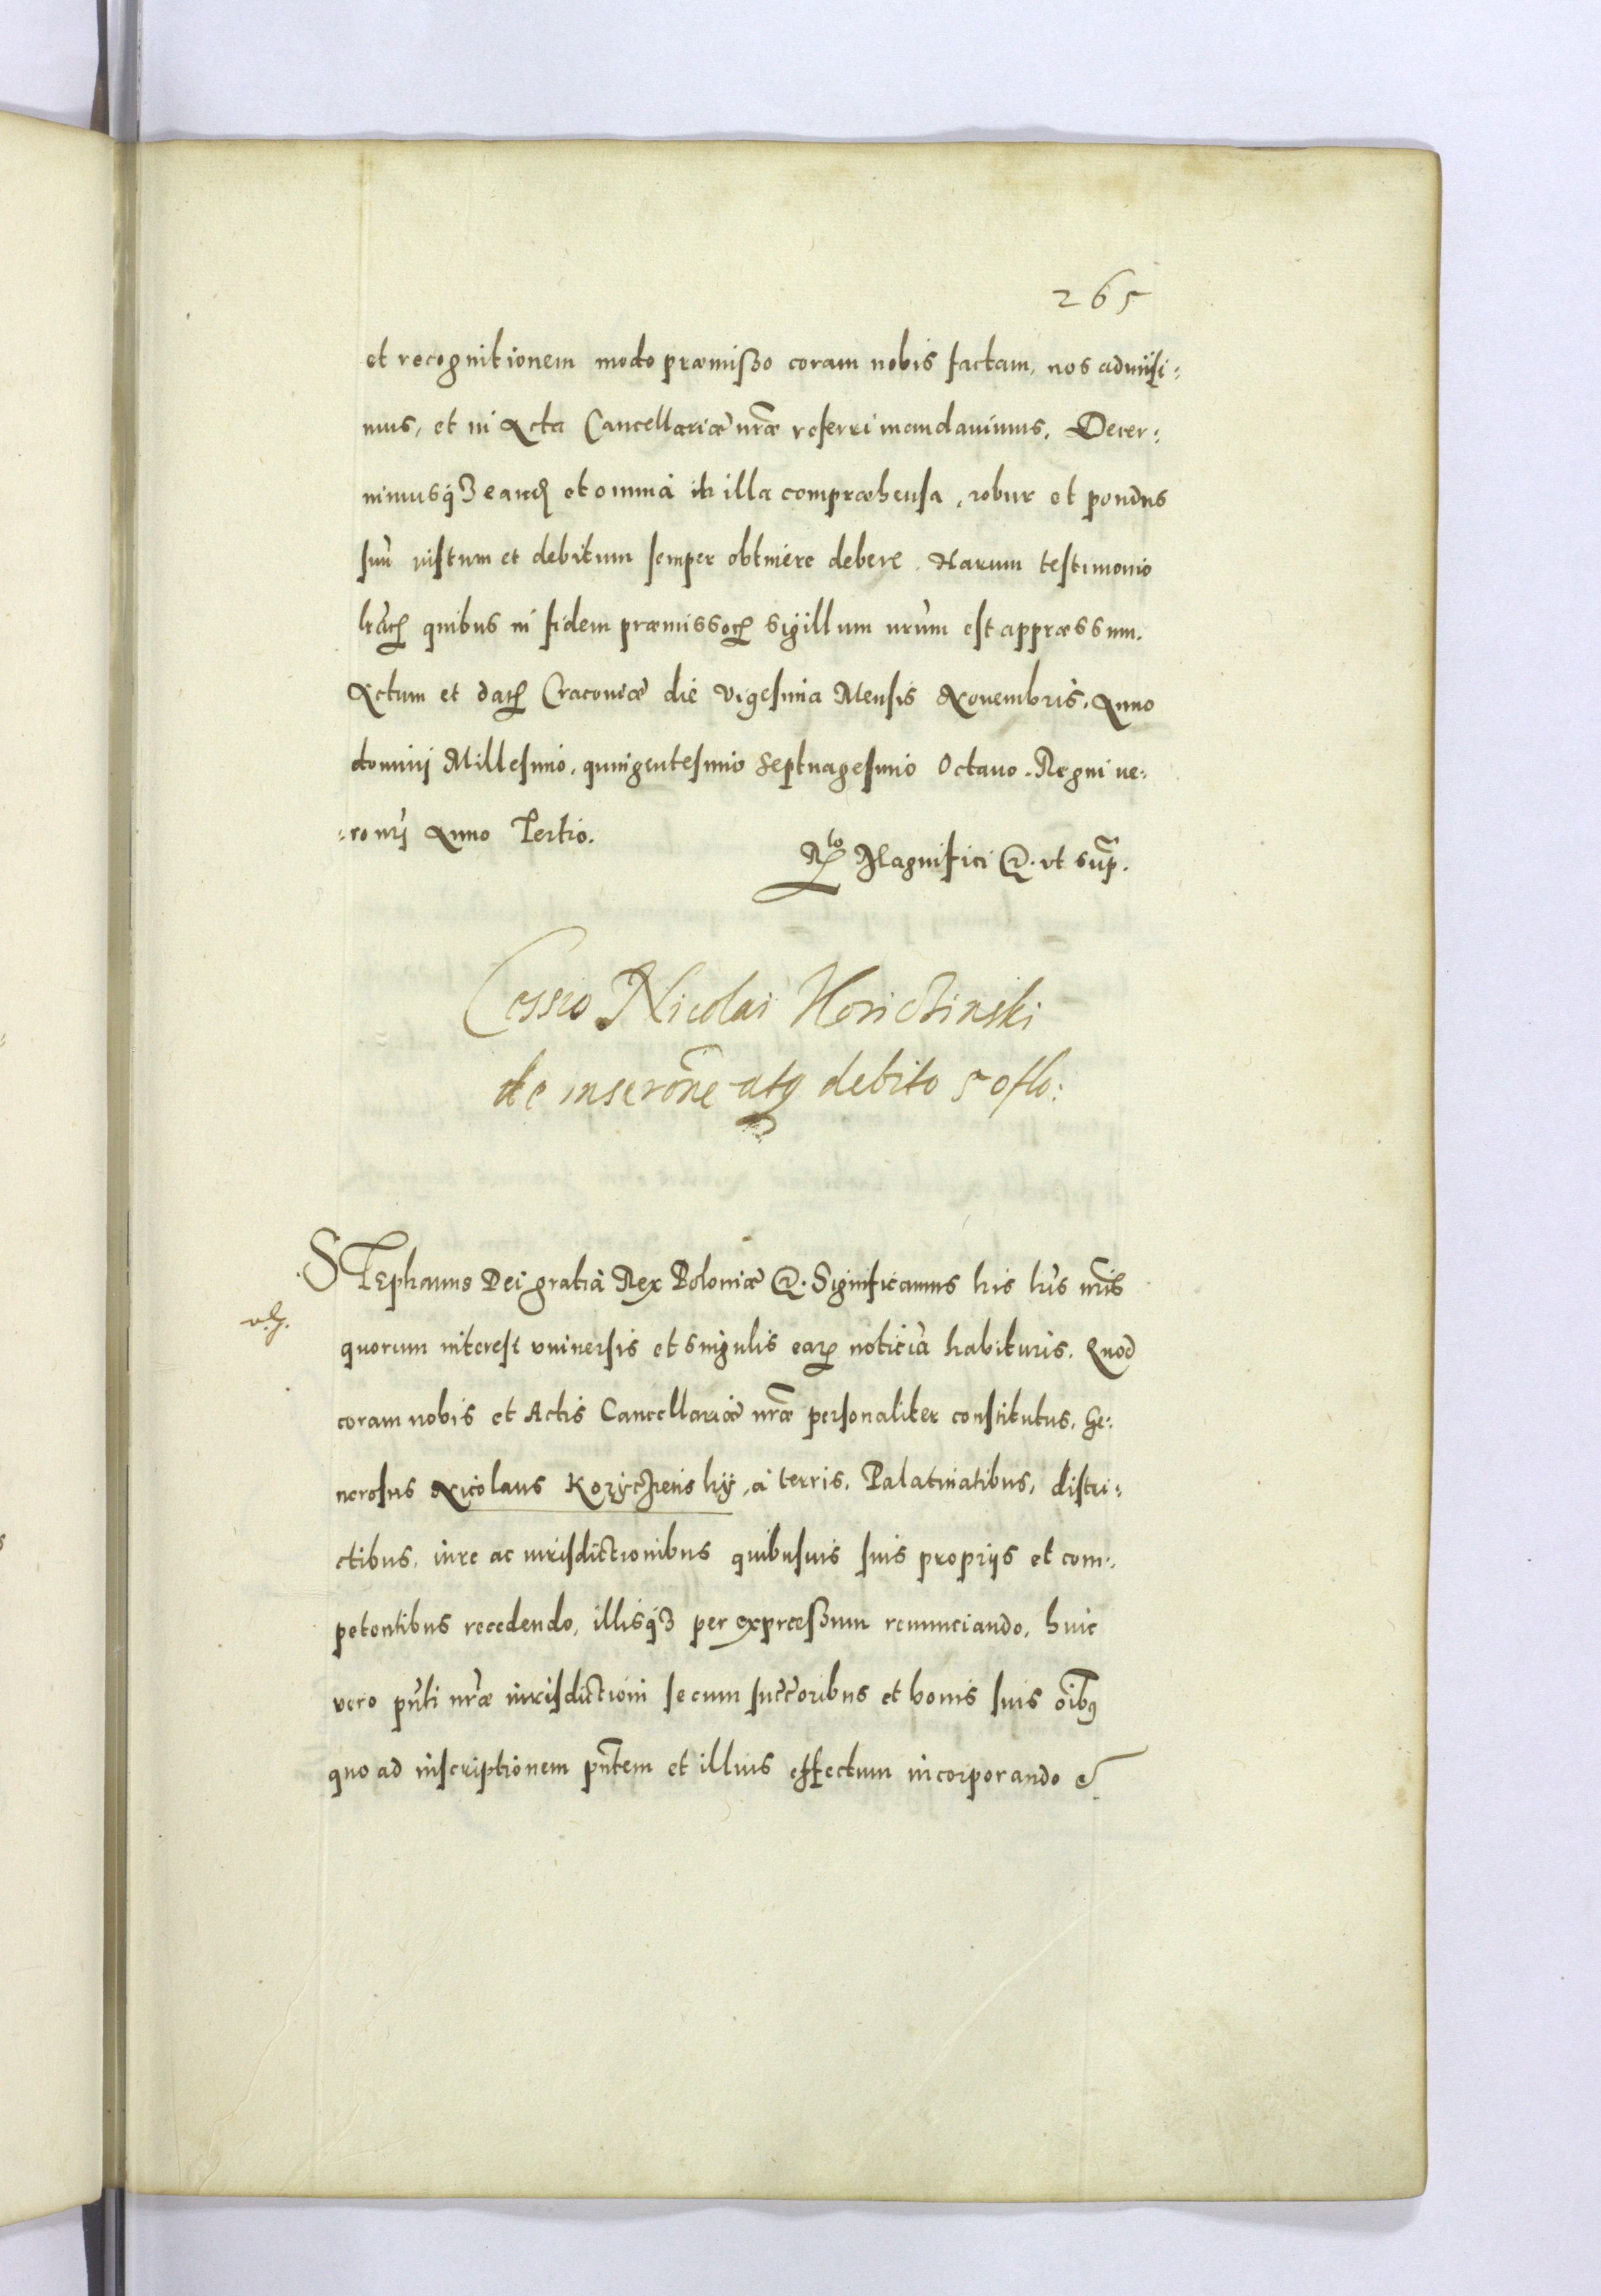 265
et recognitionem modo præmisso coram nobis factam, nos admisi=
mus, et in Acta Cancellariæ nræ referri mandauimus. Decer=
nimusq3 eand et omnia in illa compræhensa, robur et pondus
suu iustum et debitum semper obtinere debere. Harum testimonio
lrarum quibus in fidem præmissorum Sigillum nrum est appræssum.
Actum et datum Cracoviæ die Vigesima Mensis Nouembris, Anno
dominj Millesimo, quingentesimo Septuagesimo Octauo. Regni ve=
=ro nrj Anno Tertio.
Rto Magnifici &. vt Supra.
Cessio Nicolai
de inscrone atq debito 50 flo:
STephanus Dei gratia Rex Poloniæ &. Significamus his lris nris
quorum interest vniuersis et singulis earum noticia habituris. Quod
coram nobis et Actis Cancellariæ nræ personaliter constitutus, Ge=
nerosus Nicolaus Korÿczienskÿ, à terris, Palatinatibus, distri=
ctibus, iure ac iurisdictionibus quibusuis suis proprijs et com=
petentibus recedendo, illisq3 per expræssum renunciando, huic
vero pnti nræ iurisdictioni se cum succoribus et bonis suis oibus
quo ad inscriptionem pntem et illius effectum incorporando &